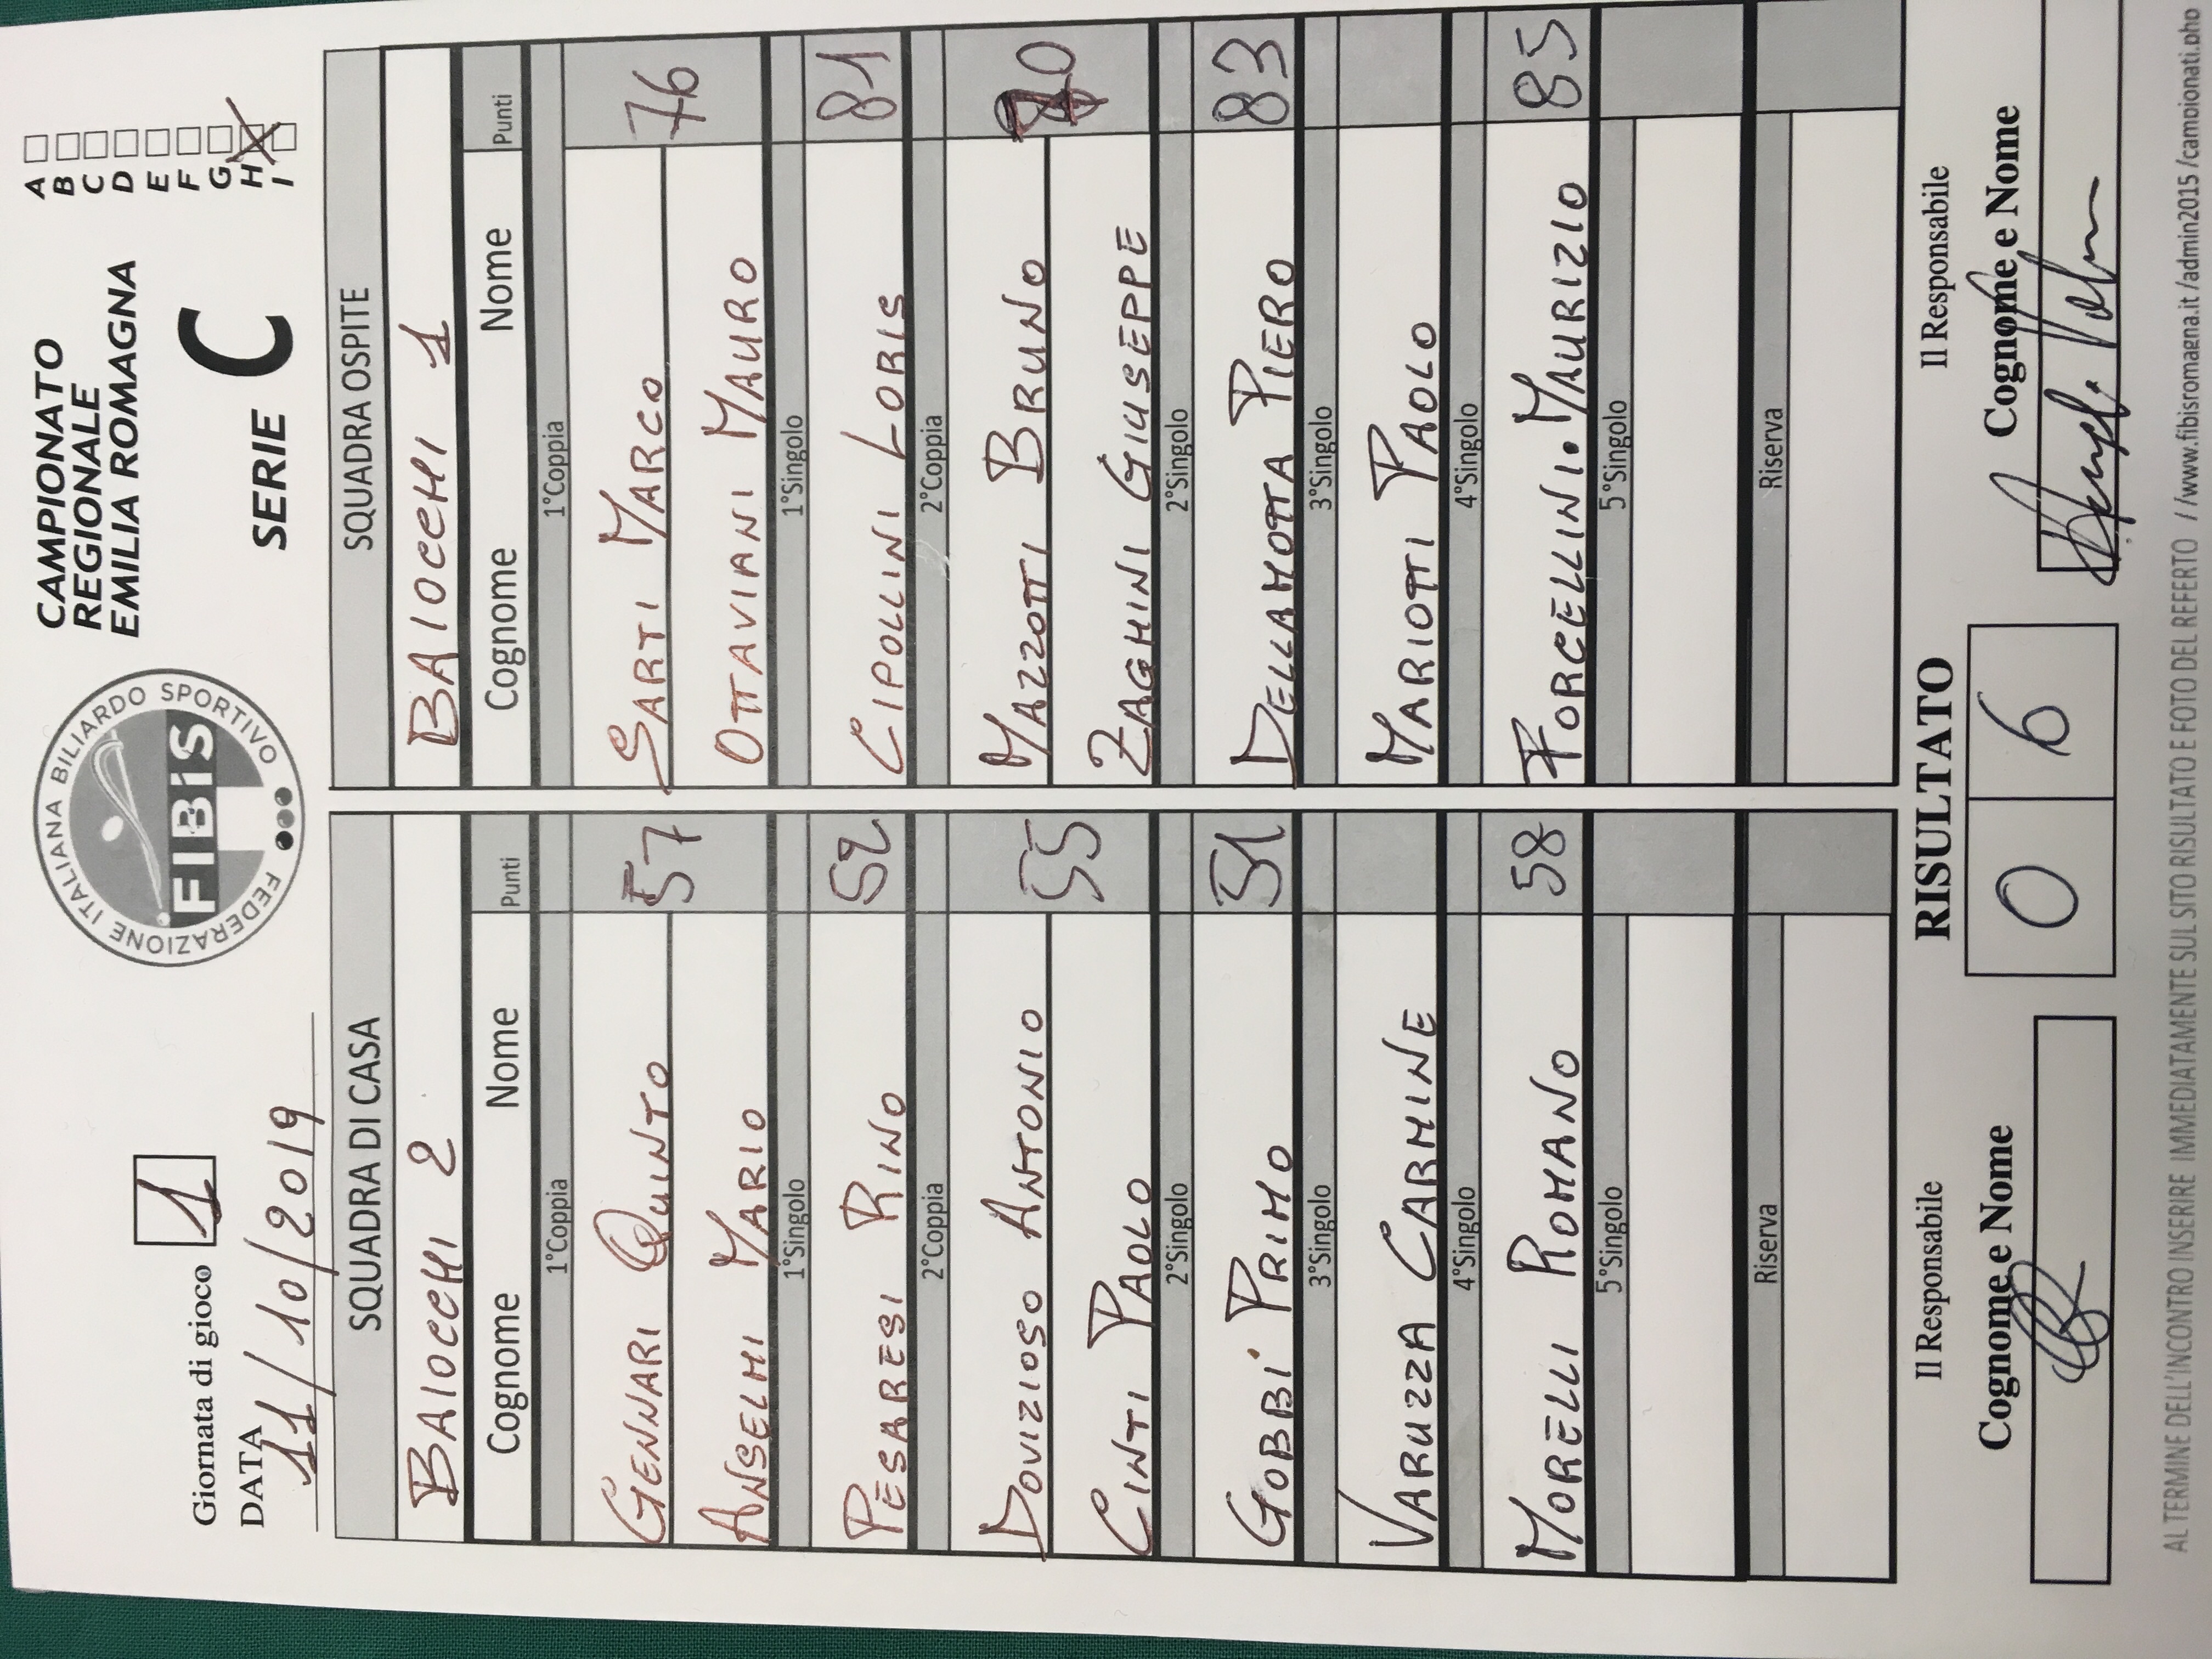 Giornata di gioco 1
DATA 11/10/2019
FEDERAZIONE ITALIANA BILIARDO SPORTIVO
FIBiS
CAMPIONATO
REGIONALE
EMILIA ROMAGNA
SERIE C
A
B
C
D
E
F
G
H X
I
SQUADRA DI CASA SQUADRA OSPITE
BAIOCCHI 2 BAIOCCHI 1
Cognome Nome Punti Cognome Nome Punti
1°Coppia 1°Coppia
GENNARI QUINTO 57 SARTI MARCO 76
ANSELMI MARIO OTTAVIANI MAURO
1°Singolo 1°Singolo
PESARESI RINO 52 CIPOLLINI LORIS 81
2°Coppia 2°Coppia
DOVIZIOSO ANTONIO 55 MAZZOTTI BRUNO
CINTI PAOLO ZAGHINI GIUSEPPE
2°Singolo 2°Singolo
GOBBI PRIMO 51 DELLAMOTTA PIERO 83
3°Singolo 3°Singolo
VARUZZA CARMINE MARIOTTI PAOLO
4°Singolo 4°Singolo
MORELLI ROMANO 58 FORCELLINI.MAURIZIO 85
5°Singolo 5°Singolo
Riserva Riserva
Il Responsabile RISULTATO Il Responsabile
Cognome e Nome 0 6 Cognome e Nome
AL TERMINE DELL'INCONTRO INSERIRE IMMEDIATAMENTE SUL SITO RISULTATO E FOTO DEL REFERTO //www.fibisromagna.it/admin2015/campionati.php